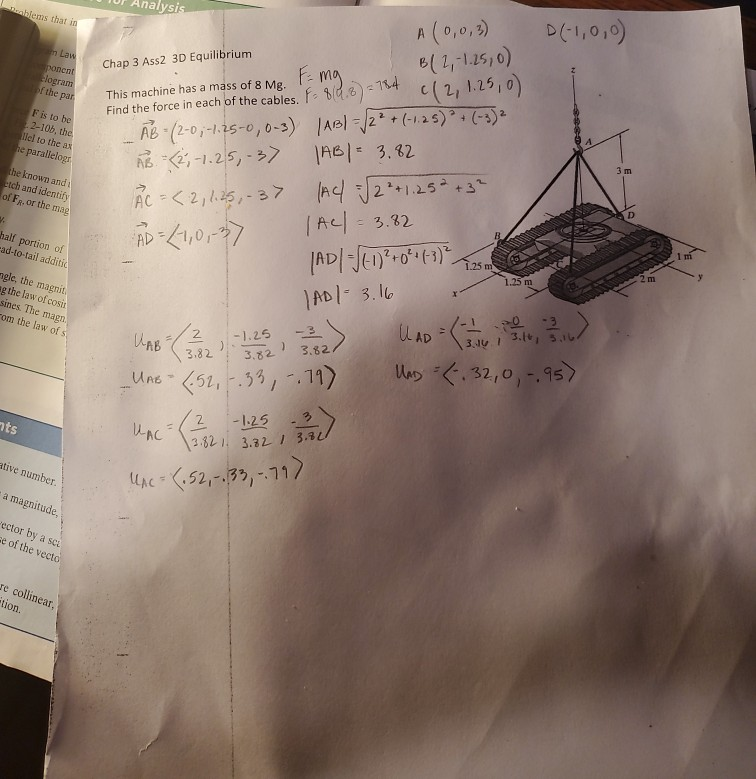 for Analysis
Problems that in
Law
ponent
elogram
of the par
F is to be
2-10b, the
llel to the ax
he parallelogr
the known and
etch and identify
of FR, or the mag
half portion of
ad-to-tail additic
ngle, the magnit
g the law of cosin
sines. The magn
om the law of s
nts
ative number.
a magnitude,
ector by a sca
e of the vecto
re collinear,
ition.
Chap 3 Ass2 3D Equilibrium
This machine has a mass of 8 Mg.
Find the force in each of the cables.
F = mg
F = 8(9.8) = 784
A (0,0,3)
D(-1,0,0)
B(2,-1.25,0)
C(2, 1.25, 0)
AB = (2-0, -1.25-0, 0-3)
AB = <2, -1.25, -3>
AC = <2, 1.25, -3>
AD = <-1,0,-3>
|AB| = √2² + (-1.25)² + (-3)²
|AB| = 3.82
|AC| = √2² + 1.25² + 3²
|AC| = 3.82
|AD| = √(-1)² + 0² + (-3)²
|AD| = 3.16
z
A
3 m
D
B
C
1.25 m
1.25 m
1 m
2 m
x
y
UAB = <2/3.82, -1.25/3.82, -3/3.82>
UAB = <.52, -.33, -.79>
UAC = <2/3.82, -1.25/3.82, -3/3.82>
UAC = <.52, -.33, -.79>
UAD = <-1/3.16, 0/3.16, -3/3.16>
UAD = <-.32, 0, -.95>